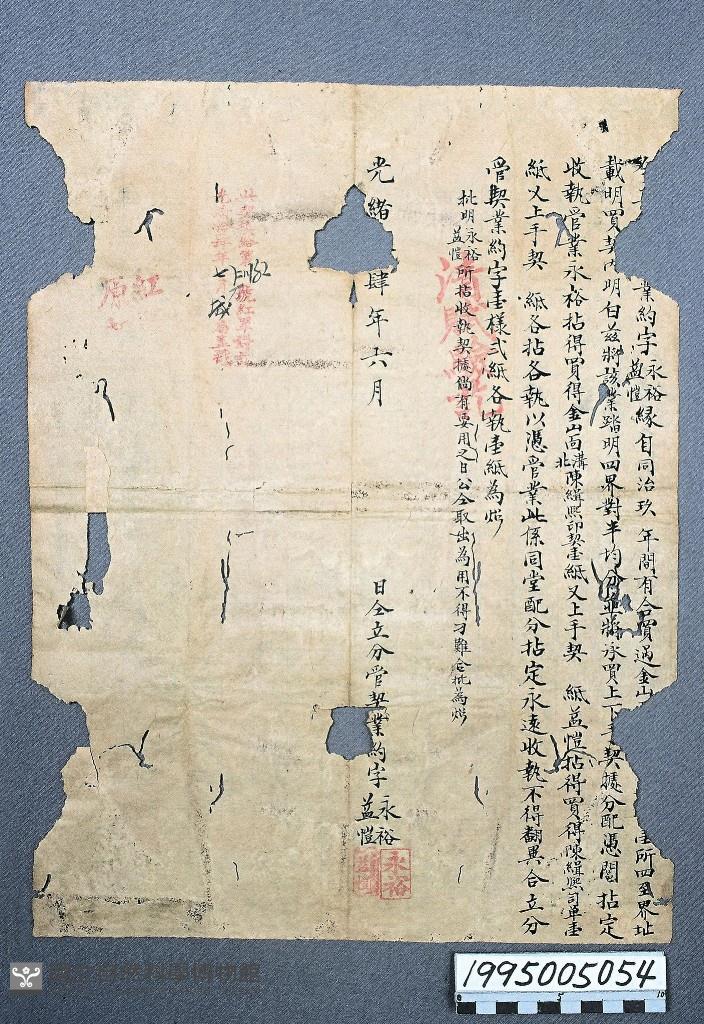 業約字永裕益愷緣自同治玖年間有合買過金山
所四至界址
載明買契內明白茲將該業踏明四界對半均分並將承買上下手契據分配憑鬮拈定
收執管業永裕拈得買得金山面溝北陳緝熙印契壹紙又上手契 紙益愷拈得買得陳緝熙司單壹
紙又上手契 紙各拈各執以憑管業此係同堂配分拈定永遠收執不得翻異合立分
管契業約字壹樣弍紙各執壹紙為炤
批明永裕益愷所拈收執契據倘有要用之日公仝取出為用不得刁難合批為炤
光緒 肆年六月 日仝立分管契業約字永裕益愷
永裕
1995005054